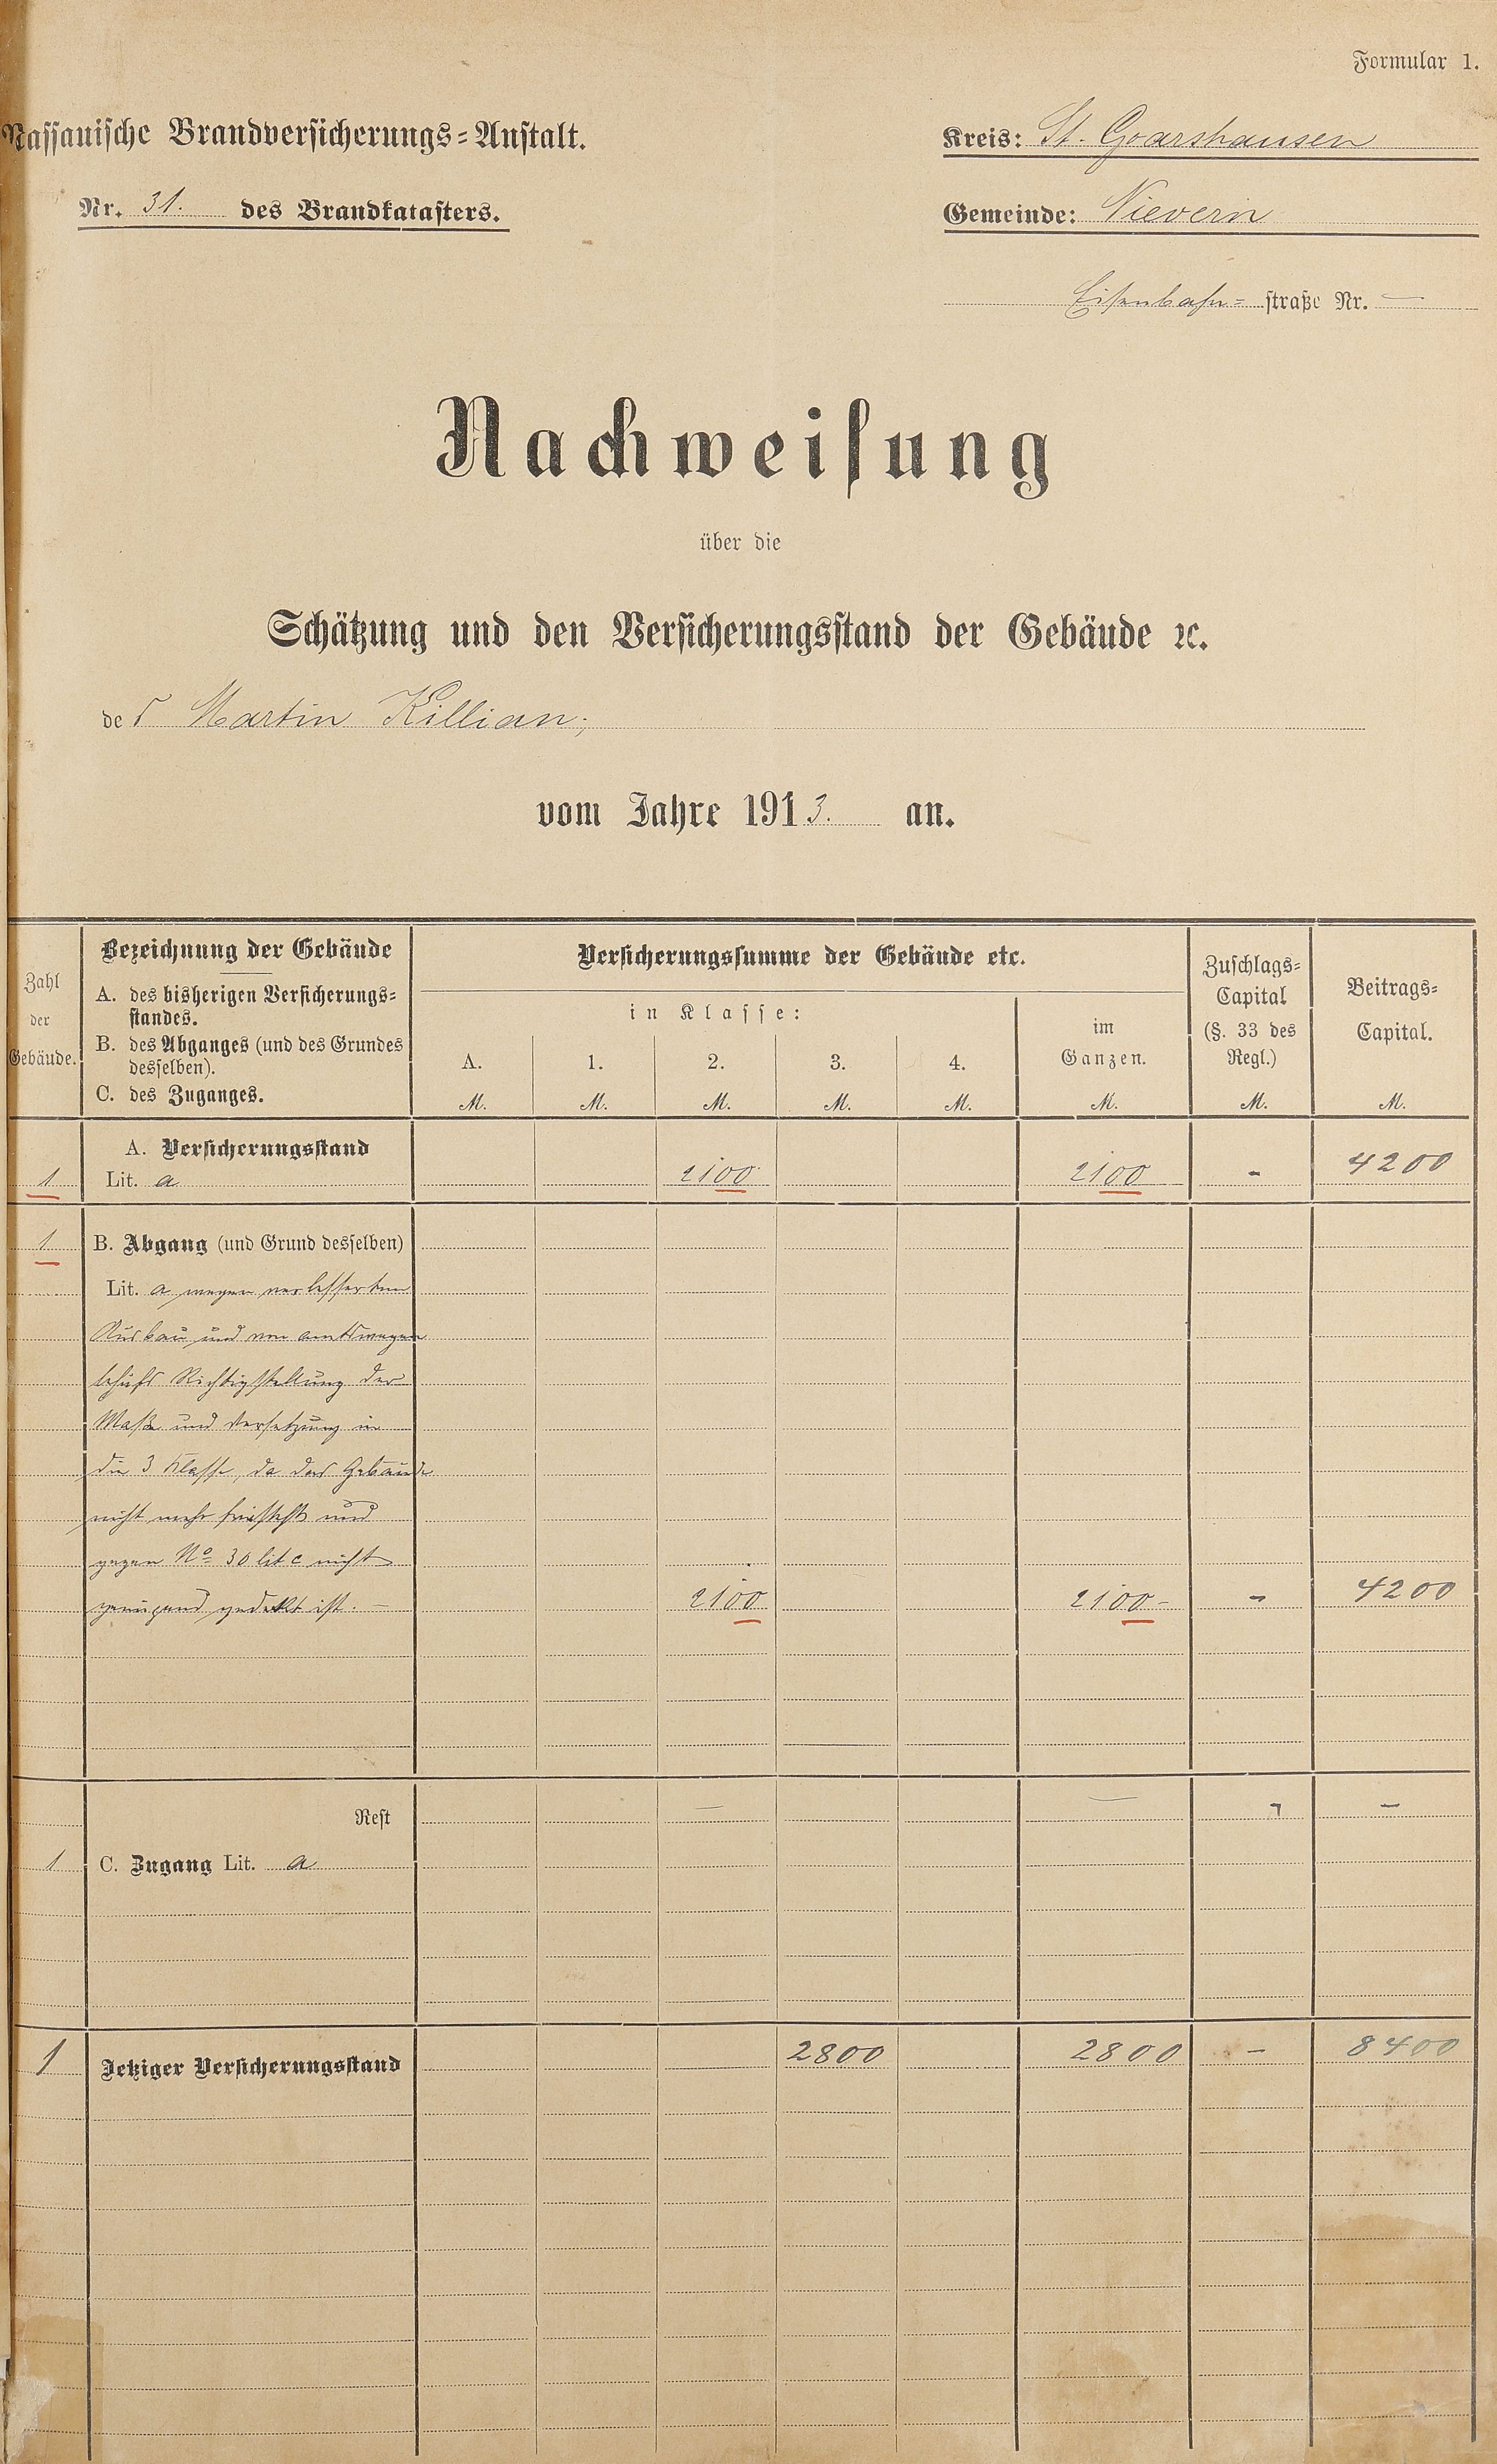 Formular 1.
Nassauische Brandversicherungs=Anstalt.
Kreis: St. Goarshausen
Nr. 31. des Brandkatasters.
Gemeinde: Nievern
Eisenbahn= straße Nr. —
Nachweisung
über die
Schätzung und den Versicherungsstand der Gebäude ꝛc.
der Martin Killian,
vom Jahre 1913. an.
Zahl der Gebäude.
Bezeichnung der Gebäude
A. des bisherigen Versicherungs=
standes.
B. des Abganges (und des Grundes
desselben).
C. des Zuganges.
Versicherungssumme der Gebäude etc.
in Klasse:
A. 1. 2. 3. 4.
im
Ganzen.
Zuschlags=
Capital
(§. 33 des
Regl.)
Beitrags=
Capital.
M. M. M. M. M. M. M. M.
A. Versicherungsstand
1 Lit. a 2100 2100 - 4200
1 B. Abgang (und Grund desselben)
Lit. a wegen verbesserten
Ausbau und von amtswegen
behufs Richtigstellung der
Maße und Versetzung in
die 3 Klasse, da das Gebäude
nicht mehr freisteht und
gegen No 30 lit c nicht
genügend gedeckt ist. — 2100 2100 - - 4200
Rest — — - -
1 C. Zugang Lit. a
1 Jetziger Versicherungsstand 2800 2800 - 8400